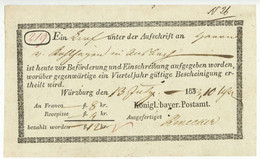 N 26
219 Ein Brief unter der Aufschrift an
ist heute zur Beförderung und Einschreibung aufgegeben worden,
worüber gegenwärtige ein Vierteljahr gültige Bescheinigung er-
theilt wird.
Würzburg den 13 July 183 10 Uhr
An Franco 8 kr. Königl. bayer. Postamt.
Recepisse 4 kr. Ausgefertiget
bezahlt worden 12